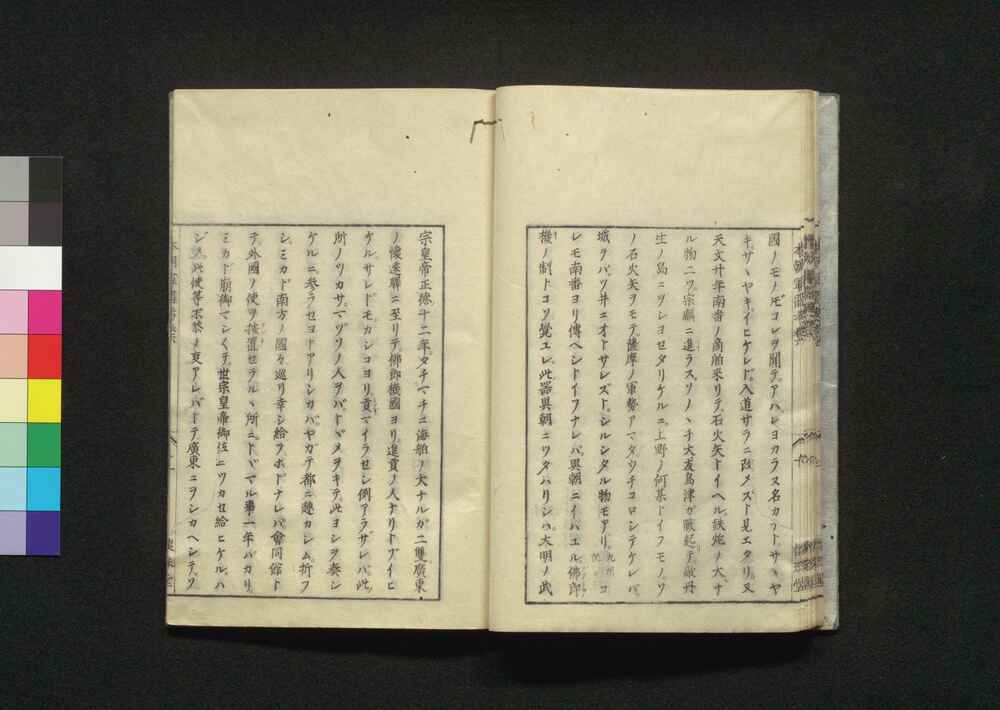 國ノモノ尤コレヲ聞テ、アハレヨカラス名カナトサヽヤ
キサヽヤキイヒケレド、入道サラニ改メズト見エタリ、又
天文廿年南番ノ商舶来リテ、石火矢トイヘル鉄炮ノ大ナ
ル物二ツ宗麟ニ進ラス、ソノヽチ大友島津ガ戦紀ニ、敵丹
生ノ島ニヲシヨセタリケルニ、上野ノ何某トイフモノ
ノ石火矢ヲモテ、薩摩ノ軍勢アマタウチコロシテケレバ、
城ヲバツ井ニオトサレズト、シルシタル物モアリ、
レモ南番ヨリ傳ヘシトイフナレバ、異朝ニイハユル佛郎
機ノ制トコソ覺ユレ、此器異朝ニツタハリシハ、大明ノ武
宗皇帝正德十二年、タチマチニ海舶ノ大ナルガ二隻廣東
ノ懷遠驛ニ至リテ、佛郎機國ヨリ進貢ノ人ナリトゾイヒ
ケル、サレドモカシコヨリ貢マイラセシ例アラザレバ、此
所ノツカサ、マヅソノ人ヲバトヾメヲキテ、此ヨシヲ奏シ
ケルニ、参ラセヨトアリシカバ、ヤガテ都ニ趣カシム、折フ
シ、ミカド南方ノ國々巡リ幸シ給フホドナレバ、會同館ト
テ、外國ノ使ヲ接置セラルヽ所ニ、トドマル事一年バカリ、
ミカド崩御マシ〱テ、世宗皇帝御位ニツカセ給ヒケルハ
ジメ、此使等不恭ノ夏アレバトテ、廣東ニヲシカヘシテゾ